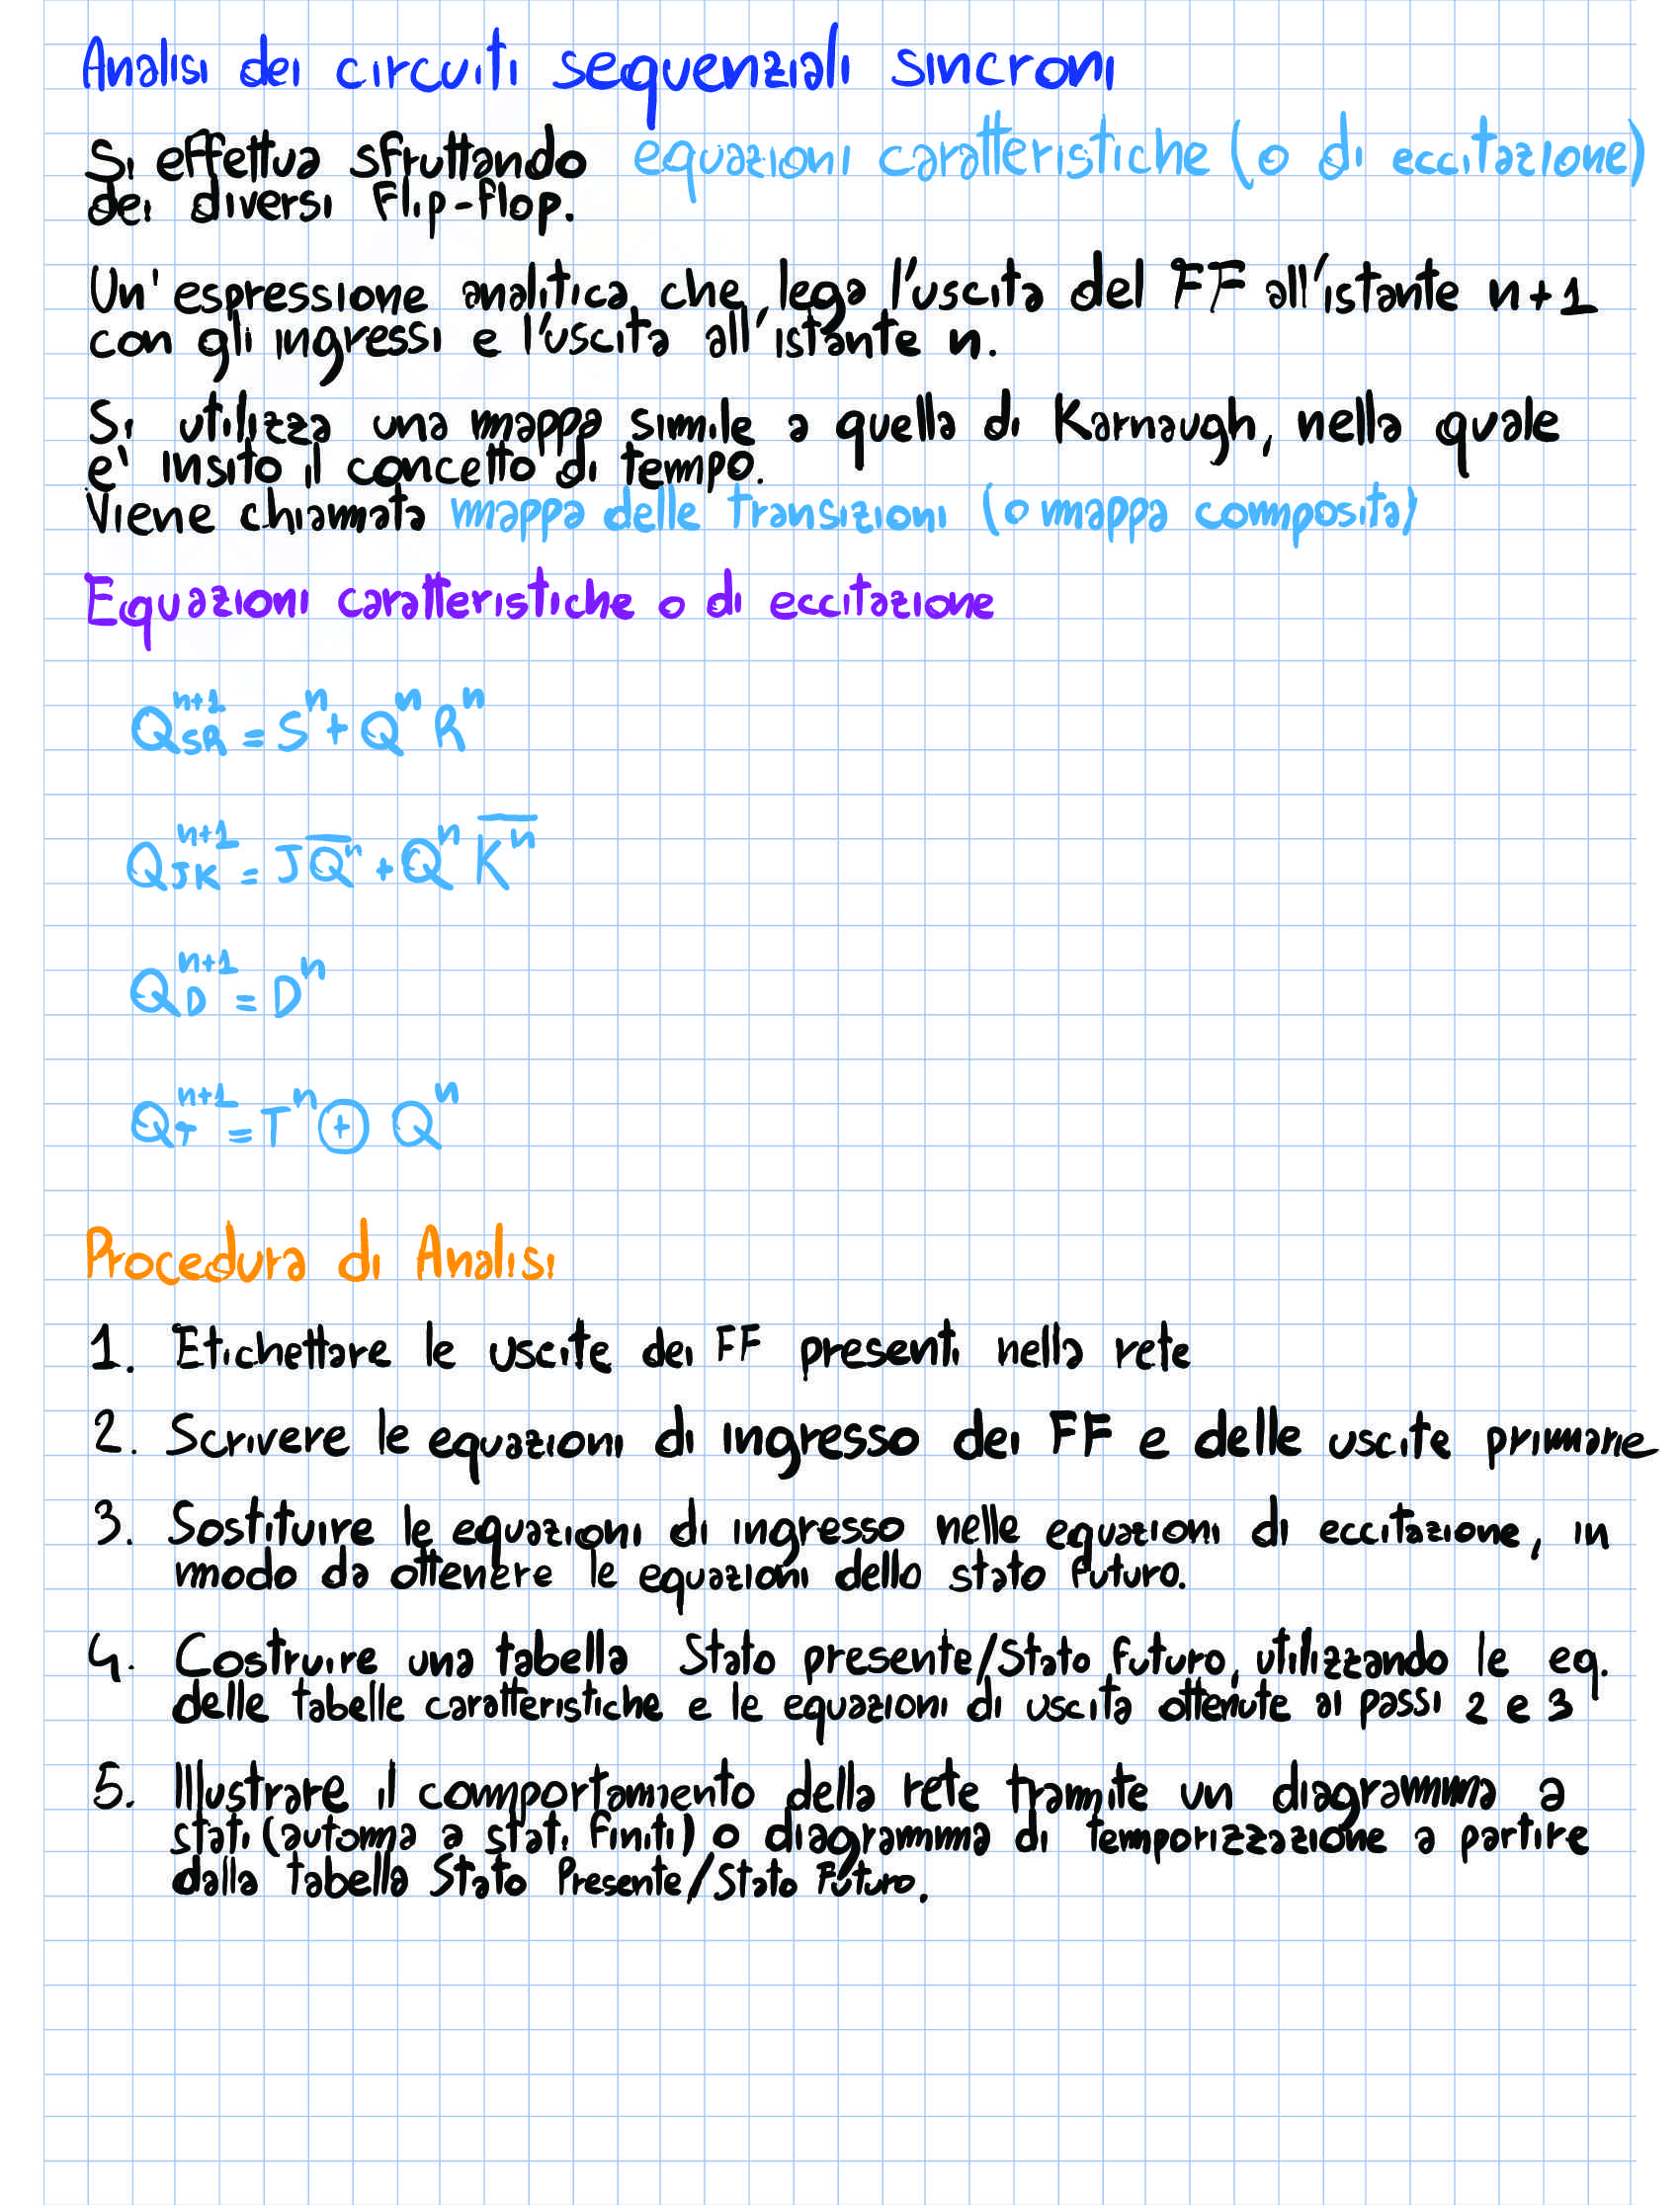 Analisi dei circuiti sequenziali sincroni
Si effettua sfruttando equazioni caratteristiche (o di eccitazione)
dei diversi Flip-flop.
Un'espressione analitica che lega l'uscita del FF all'istante n+1
con gli ingressi e l'uscita all'istante n.
Si utilizza una mappa simile a quella di Karnaugh, nella quale
e' insito il concetto di tempo.
Viene chiamata mappa delle transizioni (o mappa composita)
Equazioni caratteristiche o di eccitazione
Q_{SR}^{n+1} = S^n + Q^n R^n
Q_{JK}^{n+1} = J\overline{Q}^n + Q^n \overline{K^n}
Q_D^{n+1} = D^n
Q_T^{n+1} = T^n ⊕ Q^n
Procedura di Analisi
1. Etichettare le uscite dei FF presenti nella rete
2. Scrivere le equazioni di ingresso dei FF e delle uscite primarie
3. Sostituire le equazioni di ingresso nelle equazioni di eccitazione, in
modo da ottenere le equazioni dello stato futuro.
4. Costruire una tabella Stato presente/Stato futuro, utilizzando le eq.
delle tabelle caratteristiche e le equazioni di uscita ottenute ai passi 2 e 3
5. Illustrare il comportamento della rete tramite un diagramma a
stati (automa a stati finiti) o diagramma di temporizzazione a partire
dalla tabella Stato Presente/Stato Futuro.